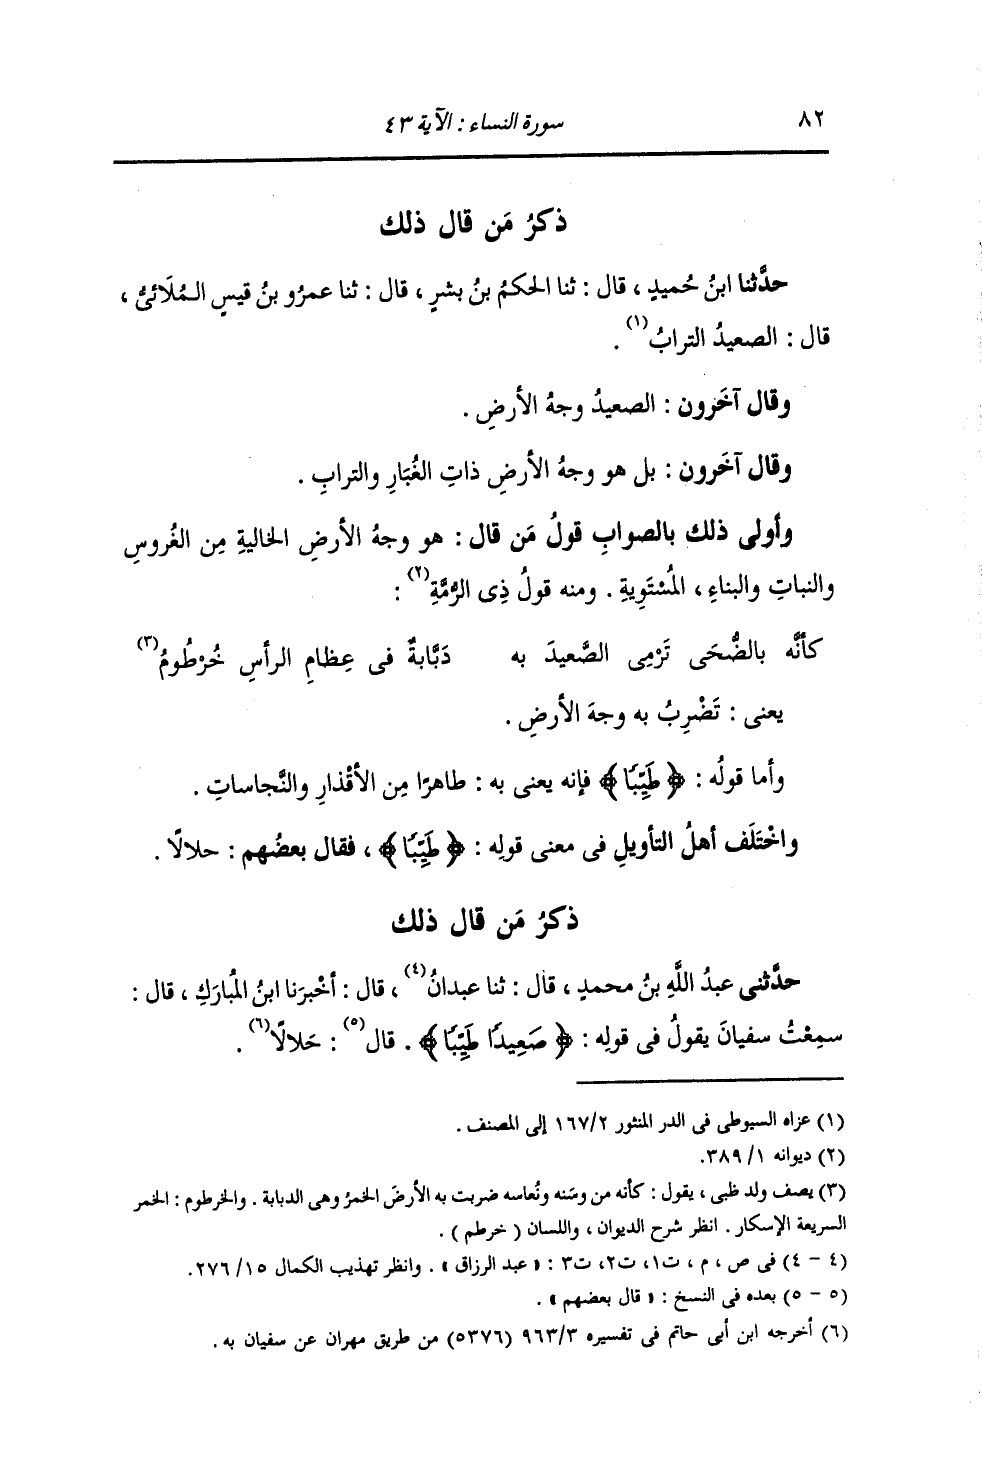 ٨٢ سورة النساء : الآية ٤٣
ذكرُ مَن قال ذلك
حدَّثنا ابنُ حُميدٍ ، قال : ثنا الحكمُ بنُ بشرٍ ، قال : ثنا عمرُو بنُ قيسٍ الـمُلَائىُّ ،
قال : الصعيدُ الترابُ(١) .
وقال آخَرون : الصعيدُ وجهُ الأرضِ .
وقال آخَرون : بل هو وجهُ الأرضِ ذاتِ الغُبَارِ والترابِ .
وأولى ذلك بالصوابِ قولُ مَن قال : هو وجهُ الأرضِ الخاليةِ مِن الغُروسِ
والنباتِ والبناءِ ، المُسْتَويةِ . ومنه قولُ ذِى الرُّمَّةِ(٢) :
كأنَّه بالضُّحَى تَرْمِى الصَّعيدَ به دَبَّابةٌ فى عِظامِ الرأسِ خُرْطُومُ(٣)
يعنى : تَضْرِبُ به وجهَ الأرضِ .
وأما قولُه : ﴿ طَيِّبًا ﴾ فإنه يعنى به : طاهرًا مِن الأقْذارِ والنَّجاساتِ .
واخْتَلَف أهلُ التأويلِ فى معنى قولِه : ﴿ طَيِّبًا ﴾ ، فقال بعضُهم : حلالًا .
ذكرُ مَن قال ذلك
حدَّثنى عبدُ اللَّهِ بنُ محمدٍ ، قال : ثنا عبدانُ(٤) ، قال : أخْبرَنا ابنُ المُبارَكِ ، قال :
سمِعْتُ سفيانَ يقولُ فى قولِه : ﴿ صَعِيدًا طَيِّبًا ﴾ . قال(٥) : حَلالًا(٦) .
(١) عزاه السيوطى فى الدر المنثور ١٦٧/٢ إلى المصنف .
(٢) ديوانه ١/ ٣٨٩.
(٣) يصف ولد ظبى ، يقول : كأنه من وسَنه ونُعاسه ضربت به الأرضَ الخمرُ وهى الدبابة . والخرطوم : الخمر
السريعة الإسكار . انظر شرح الديوان ، واللسان ( خرطم ) .
(٤ - ٤) فى ص ، م ، ت١، ت٢، ت٣ : « عبد الرزاق » . وانظر تهذيب الكمال ١٥/ ٢٧٦.
(٥ - ٥) بعده فى النسخ : « قال بعضهم » .
(٦) أخرجه ابن أبى حاتم فى تفسيره ٩٦٣/٣ (٥٣٧٦) من طريق مهران عن سفيان به .